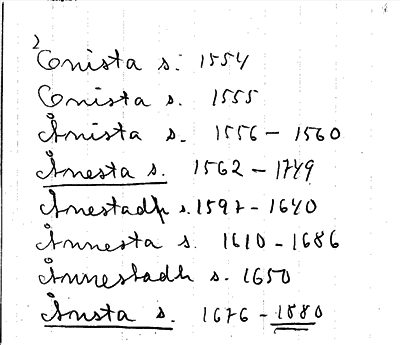 2
Onista s: 1554
Onista s. 1555
Ånista s. 1556 – 1560
Ånesta s. 1562 – 1749
Ånestadh s. 1597 – 1640
Ånnesta s. 1610 – 1686
Ånnestadh s. 1650
Ånsta s. 1676 – 1880